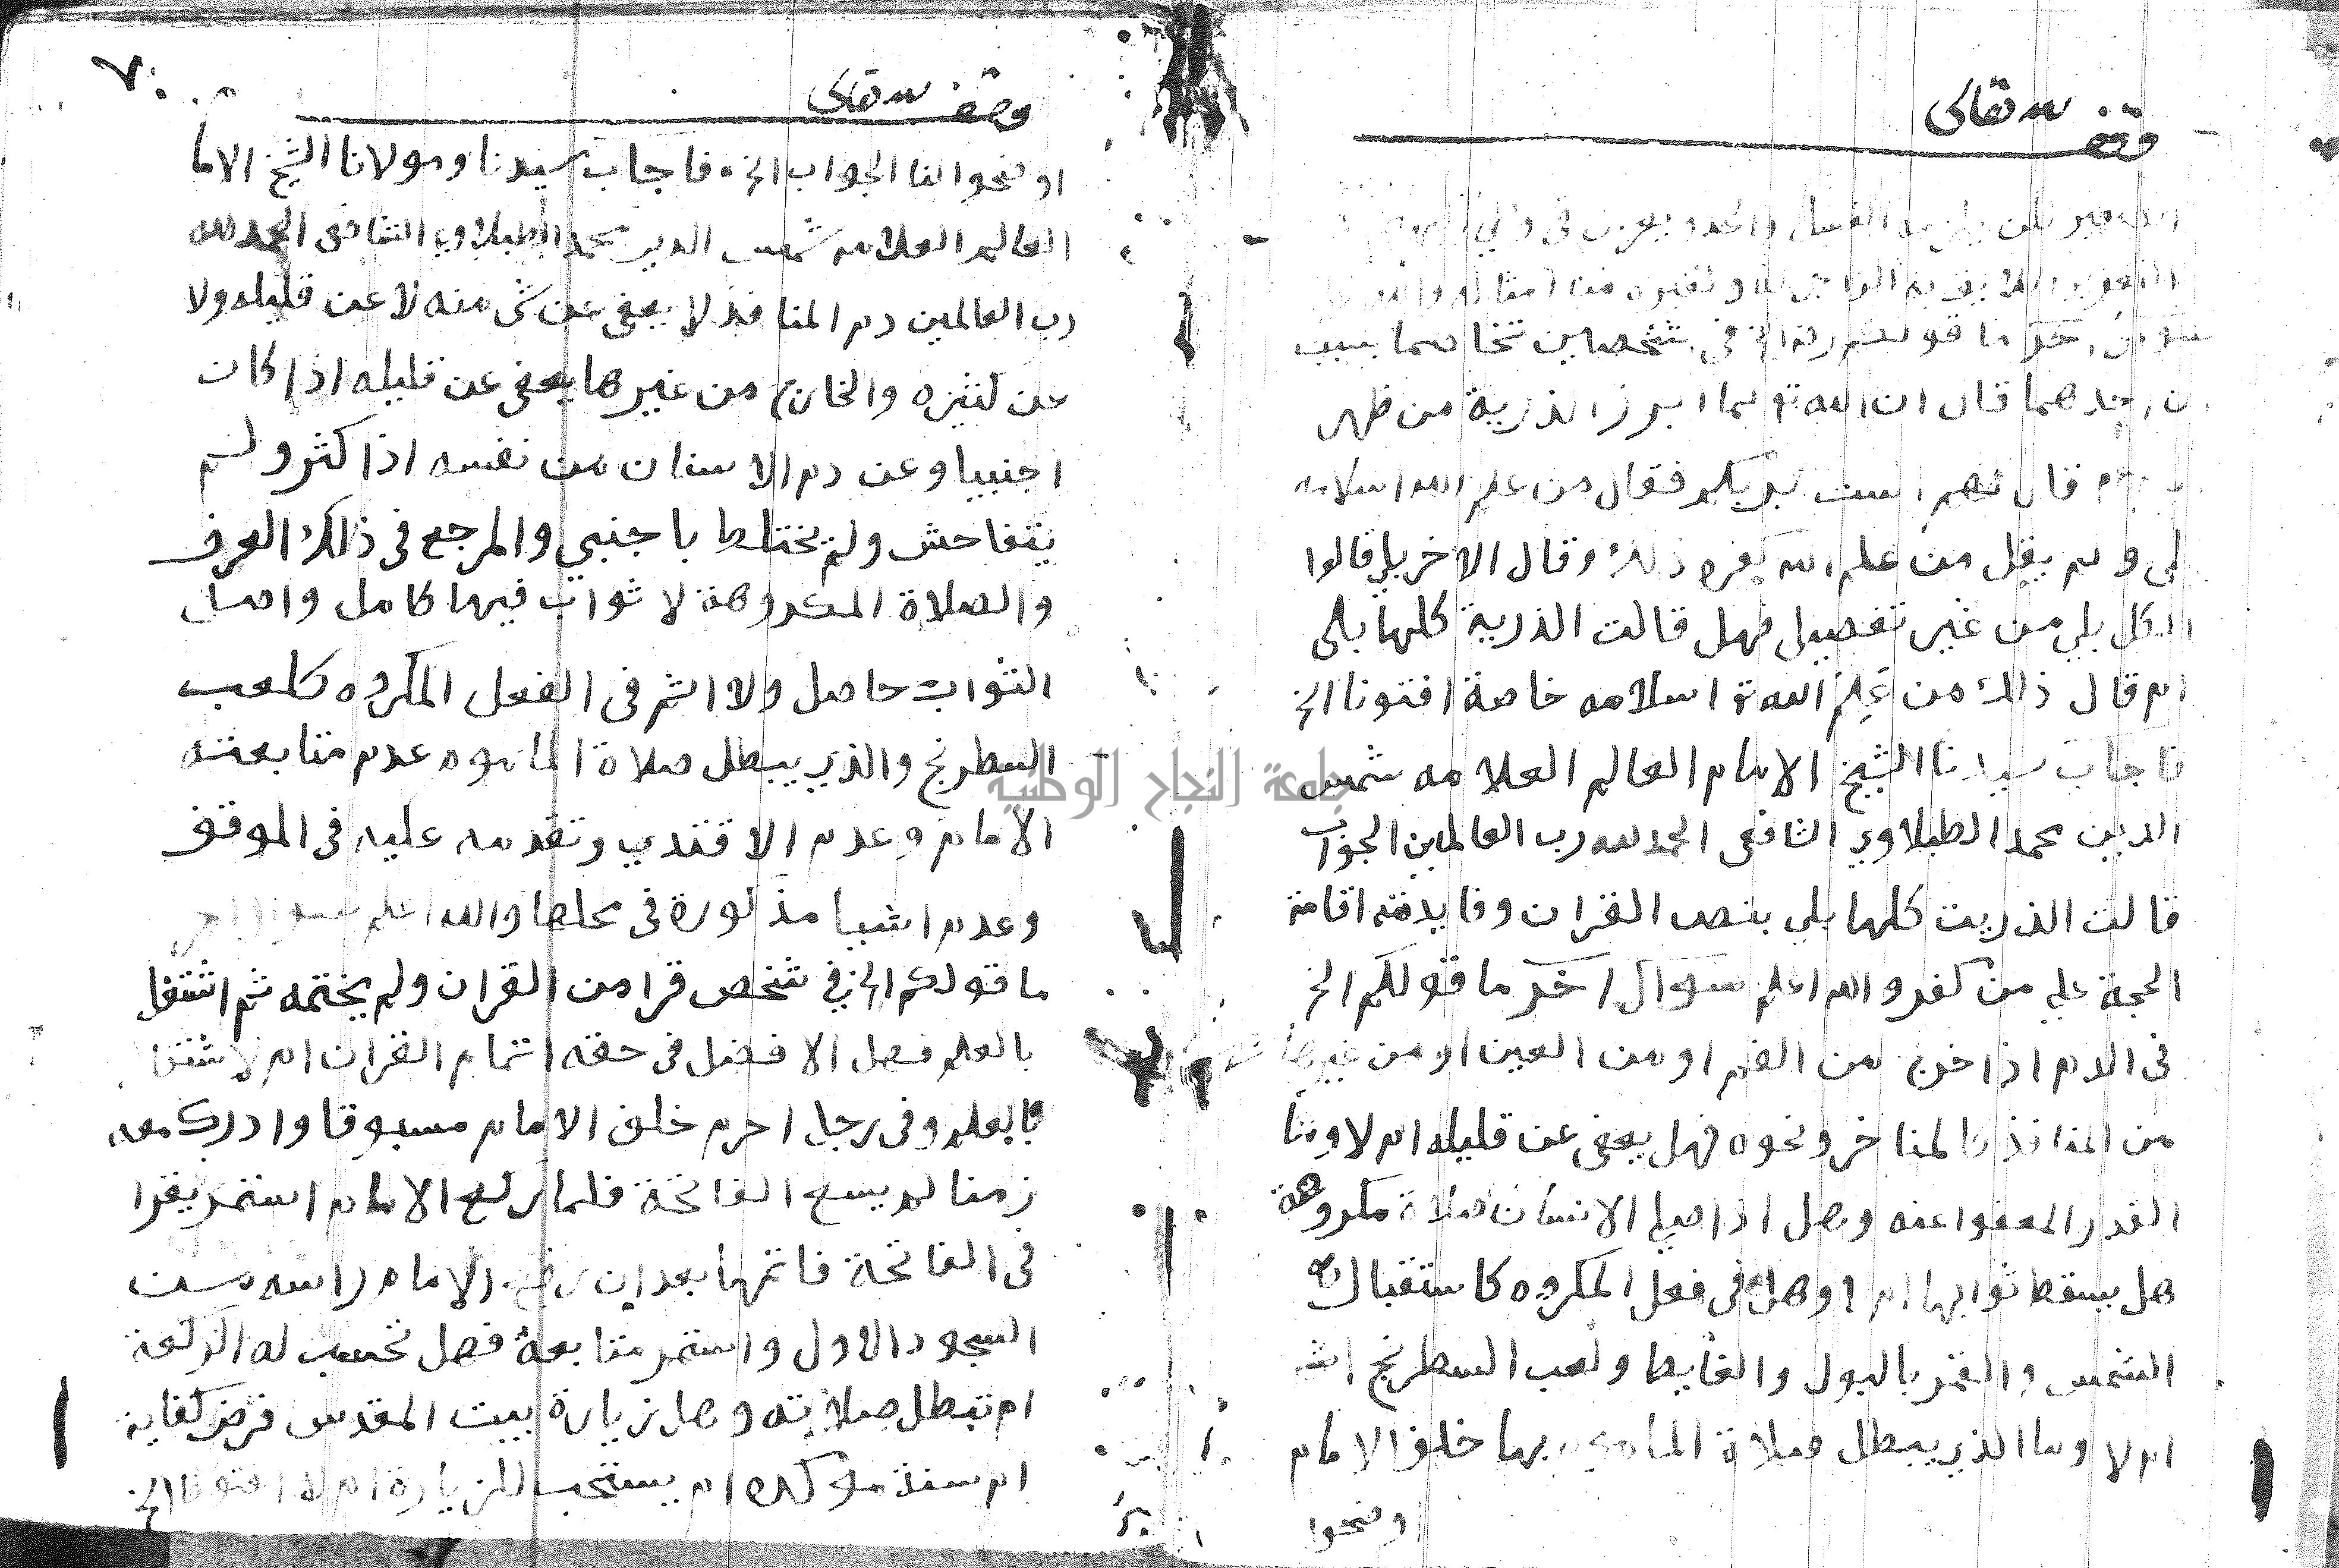 وقف لله تعالى
سوال اخر ما قولكم رضى الخ في شخصين تخاصما بسبب
احدهما قال ان الله تع لما ابرز الذرية من ظهر
قال لهم الست بربكم فقال من علم الله اسلامه
بلى ولم يقل من علم الله كفره ذلك وقال الاخر بل قالوا
الكل بلي من غير تفصيل فهل قالت الذرية كلها بلى
ام قال ذلك من علم الله تع اسلامه خاصة افتونا الخ
فاجاب سيدنا الشيخ الامام العالم العلامه شمس
الدين محمد الطبلاوي الشافعى الحمد لله رب العالمين الجواب
قالت الذريت كلها بلي بنص القران وفايدته اقامة
الحجة علي من كفر والله اعلم سوال اخر ما قولكم الخ
في الدم اذا خرج من الفم او من العين او من غيرها
من المنافذ كالمناخر ونحوه فهل يعفى عن قليله ام لا وما
القدر المعفوا عنه وهل اذا صلي الانسان صلاة مكروهة
هل يسقط ثوابها ام لا وهل في فعل المكروه كاستقبال
الشمس والقمر بالبول والغايط ولعب السطرنج اثم
ام لا وما الذي يبطل صلاة الماموم بها خلف الامام
اوضحوا
٧٠
وقف لله تعالى
اوضحوا لنا الجواب الخ فاجاب سيدنا ومولانا الشيخ الاما
العالم العلامه شمس الدين محمد الطبلاوي الشافعى الحمد لله
رب العالمين دم المنافذ لا يعفى عن شي منه لا عن قليله ولا
عن كثيره والخارج من غيرها يعفى عن قليله اذا كان
اجنبيا وعن دم الانسان من نفسه اذا كثر ولم
يتفاحش ولم يختلط باجنبي والمرجع في ذلك العرف
والصلاة المكروهة لا ثواب فيها كامل واصل
الثواب حاصل ولا اثم في الفعل المكروه كلعب
السطرنج والذي يبطل صلاة الماموم عدم متابعته
الامام وعدم الاقتدي وتقدمه عليه في الموقف
وعدم اشيا مذكورة في محلها والله اعلم سوال اخر
ما قولكم الخ في شخص قرا من القران ولم يختمه ثم اشتغل
بالعلم فهل الافضل في حقه اتمام القران ام لاشتغا
بالعلم وفي رجل احرم خلف الامام مسبوقا وادرك معه
زمنا لم يسع الفاتحة فلما ركع الامام استمر يقرا
في الفاتحة فاتمها بعد ان رفع الامام راسه من
السجود الاول واستمر متابعه فهل تحسب له الركعة
ام تبطل صلاته وهل زيارة بيت المقدس فرض كفاية
ام سنة موكده ام يستحب للزيارة ام لا افتونا الخ
جامعة النجاح الوطنية